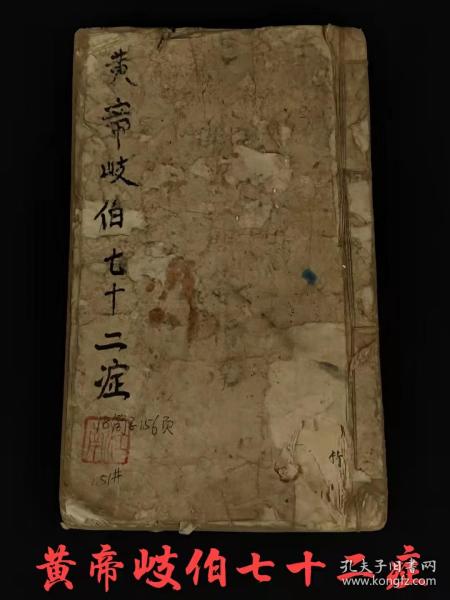 黄帝岐伯七十二症
156页
151#
竹
黄帝岐伯七十二症
孔夫子旧书网
kongfz.com